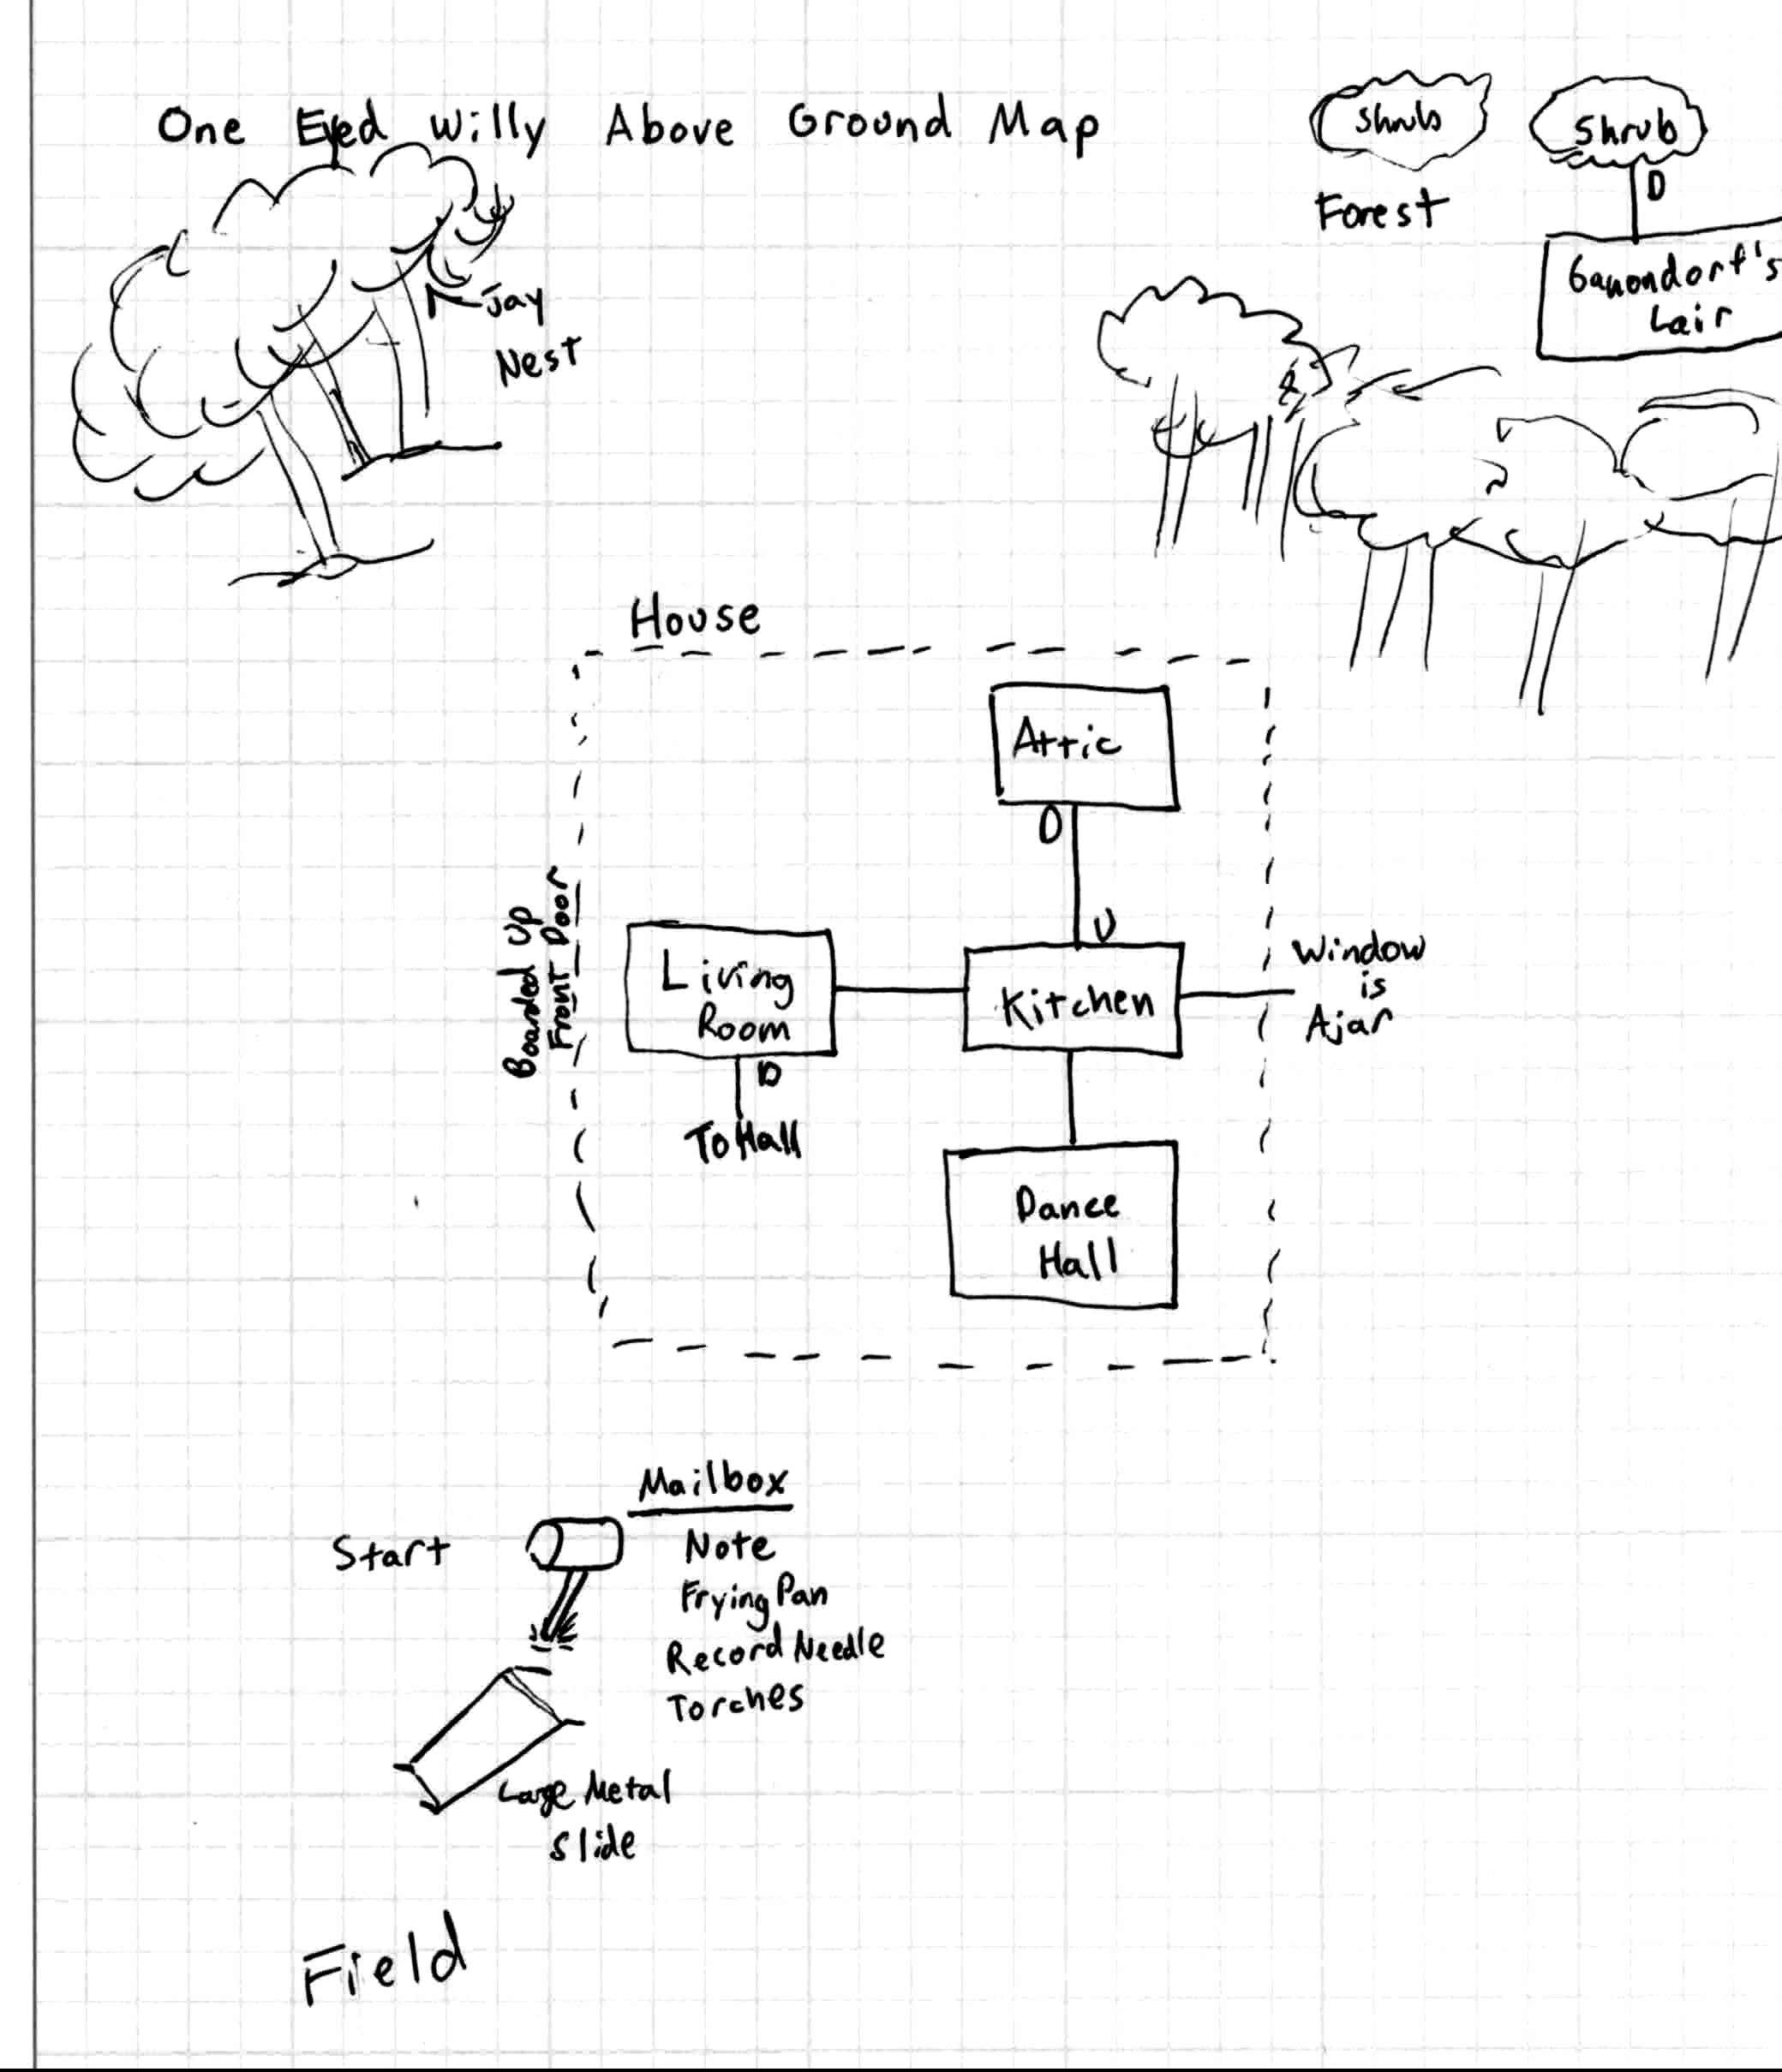 One Eyed Willy Above Ground Map
Shrub
Shrub
D
Forest
Ganondorf's
Lair
Jay
Nest
House
Attic
D
U
Boarded Up
Front Door
Living
Room
Kitchen
Window
is
Ajar
D
To Hall
Dance
Hall
Mailbox
Start
Note
Frying Pan
Record Needle
Torches
Large Metal
Slide
Field